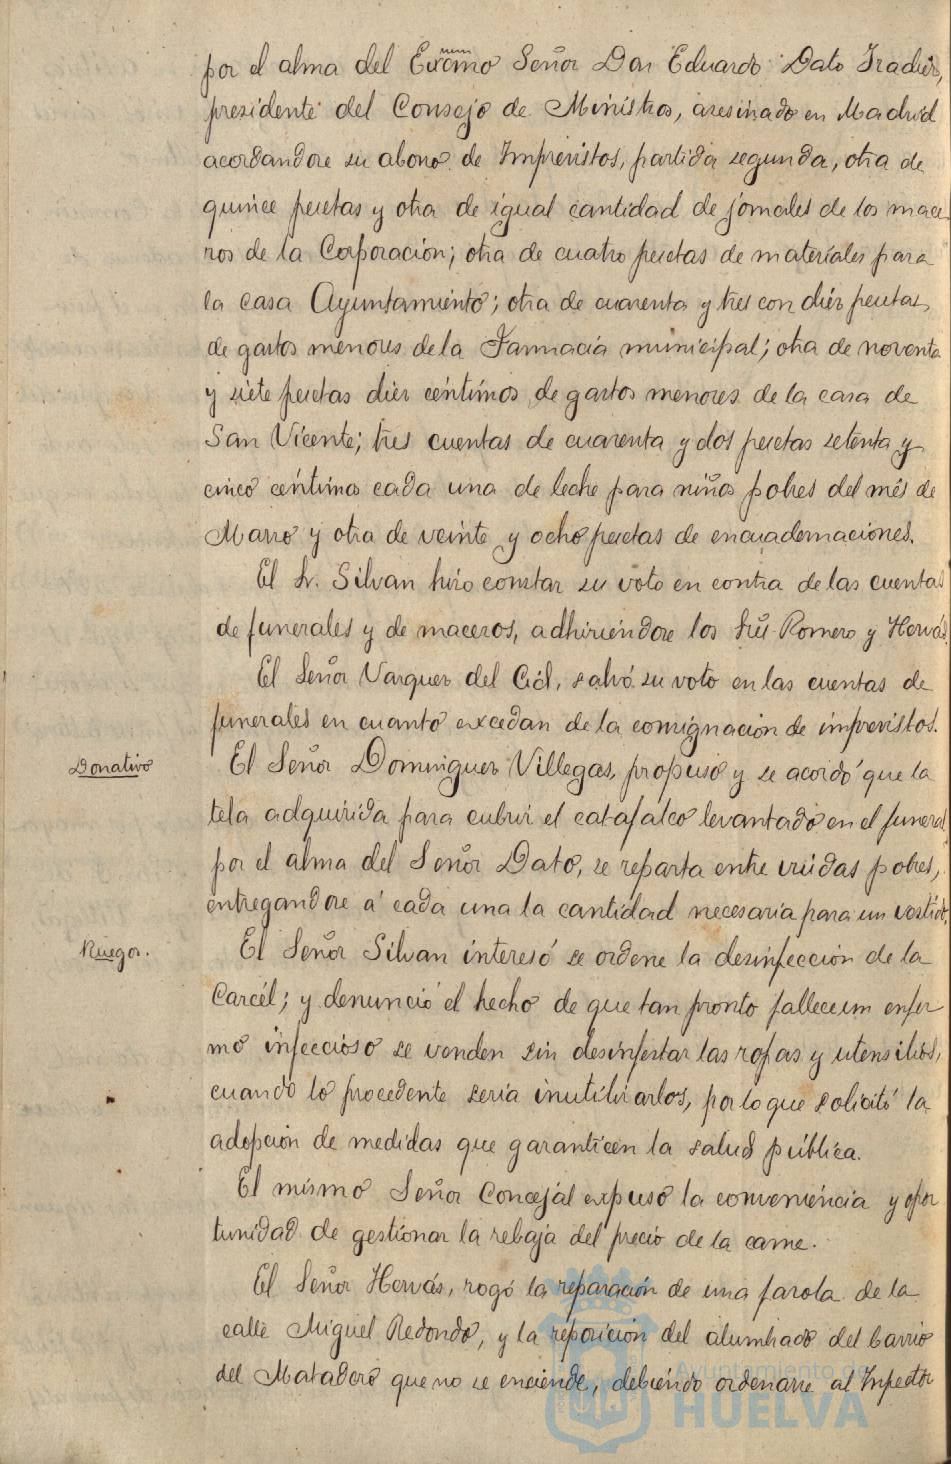 por el alma del Excmo Señor Don Eduardo Dato Iradier,
presidente del Consejo de Ministros, asesinado en Madrid
acordandose su abono de Imprevistos, partida segunda, otra de
quince pesetas y otra de igual cantidad de jornales de los mace
ros de la Corporación; otra de cuatro pesetas de materiales para
la casa Ayuntamiento; otra de cuarenta y tres con diéz pesetas,
de gastos menores de la Farmacia municipal; otra de noventa
y siete pesetas diez céntimos de gastos menores de la casa de
San Vicente; tres cuentas de cuarenta y dos pesetas setenta y
cinco céntimos cada una de leche para niños pobres del més de
Marzo y otra de veinte y ocho pesetas de encuadernaciones.
El Sr. Silvan hizo constar su voto en contra de las cuentas
de funerales y de maceros, adhiriéndose los Srs Romero y Hervás.
El Señor Vazquez del Cid, salvó su voto en las cuentas de
funerales en cuanto excedan de la consignación de imprevistos.
Donativo
El Señor Dominguez Villegas, propuso y se acordó que la
tela adquirida para cubrir el catafalco levantado en el funeral
por el alma del Señor Dato, se reparta entre viudas pobres,
entregandose á cada una la cantidad necesaria para un vestido.
Ruegos.
El Señor Silvan interesó se ordene la desinfección de la
Carcél; y denunció el hecho de que tan pronto fallece un enfer
mo infeccioso se venden sin desinfestar las ropas y utensilios,
cuando lo procedente seria inutilizarlos, por lo que solicitó la
adopción de medidas que garanticen la salud pública.
El mismo Señor Concejal expuso la conveniencia y opor
tunidad de gestionar la rebaja del precio de la carne.
El Señor Hervás, rogó la reparación de una farola de la
calle Miguel Redondo, y la reposición del alumbrado del barrio
del Matadero que no se enciende, debiendo ordenarse al Inspector
Ayuntamiento de
HUELVA